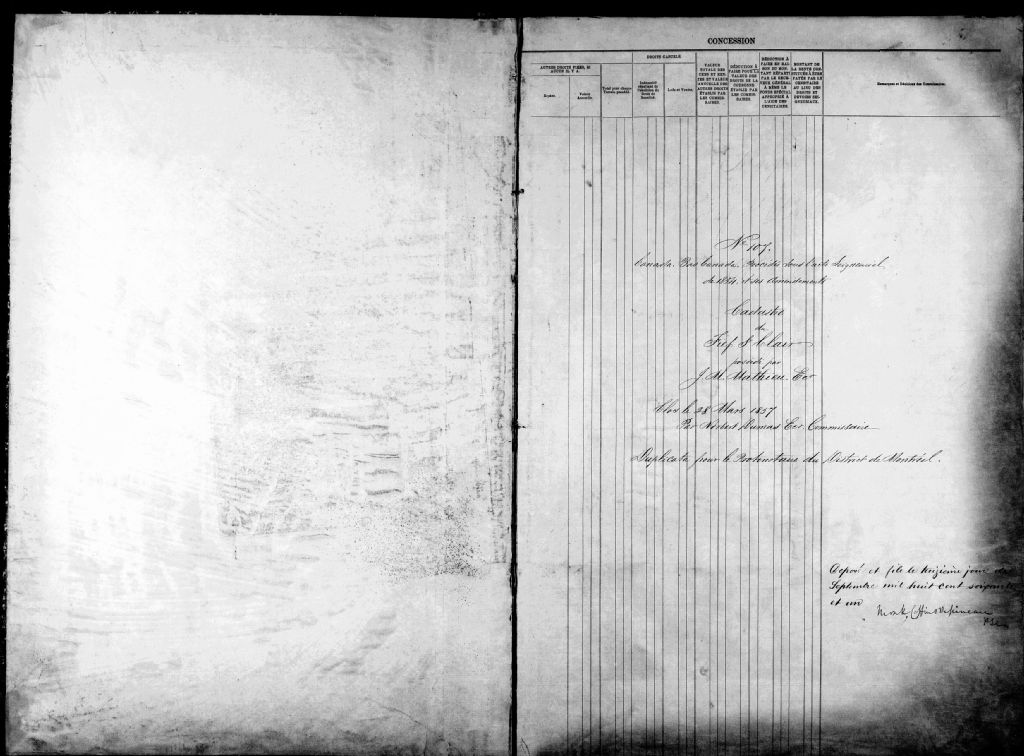 CONCESSION
AUTRES DROITS FIXES, SI
AUCUN IL Y A.
Espèce.
Valeur
Annuelle.
Total pour chaque
Terrain possédé.
DROITS CASUELS
Indemnité
Lods et Ventes.
VALEUR
TOTALE DES
CENS ET REN-
TES ET VALEUR
ANNUELLE DES
AUTRES DROITS
ÉTABLIE PAR
LES COMMIS-
SAIRES.
DÉDUCTION À
FAIRE POUR LA
VALEUR DES
DROITS DE LA
COURONNE
ÉTABLIE PAR
LES COMMIS-
SAIRES.
DÉDUCTION À
FAIRE EN RAI-
SON DU MON-
TANT RÉPARTI
PAR LE RECE-
VEUR GÉNÉRAL
À MÊME LE
FONDS SPÉCIAL
APPROPRIÉ À
L'AIDE DES
CENSITAIRES.
MONTANT DE
LA RENTE CON-
STITUÉE À ÊTRE
PAYÉE PAR LE
CENSITAIRE
AU LIEU DES
DROITS ET
DEVOIRS SEI-
GNEURIAUX.
Remarques et Décisions des Commissaires.
No 107.
Canada. Bas Canada. Procédés sous l'acte Seigneurial
de 1854, et ses Amendements
Cadastre
du
Fief St Clair
possédé par
J. M. Mathieu. Ecr
Clos le 28 Mars 1857
Par Norbert Dumas Ecr. Commissaire
Duplicata pour le Protonotaire du District de Montréal.
Déposé et filé le treizième jour de
Septembre mil huit cent soixante
et un
Monk, Coffin & Papineau